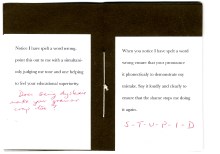 Notice I have spelt a word wrong,
point this out to me with a simultane-
ous judging me tone and one helping
to feel your educational superiority.
Does being dyslexic
make your grammar
When you notice I have spelt a word
wrong, ensure that your pronounce
it phonetically to demonstrate my
mistake. Say it loudly and clearly to
ensure that the shame stops me doing
it again.
S-T-U-P-I-D